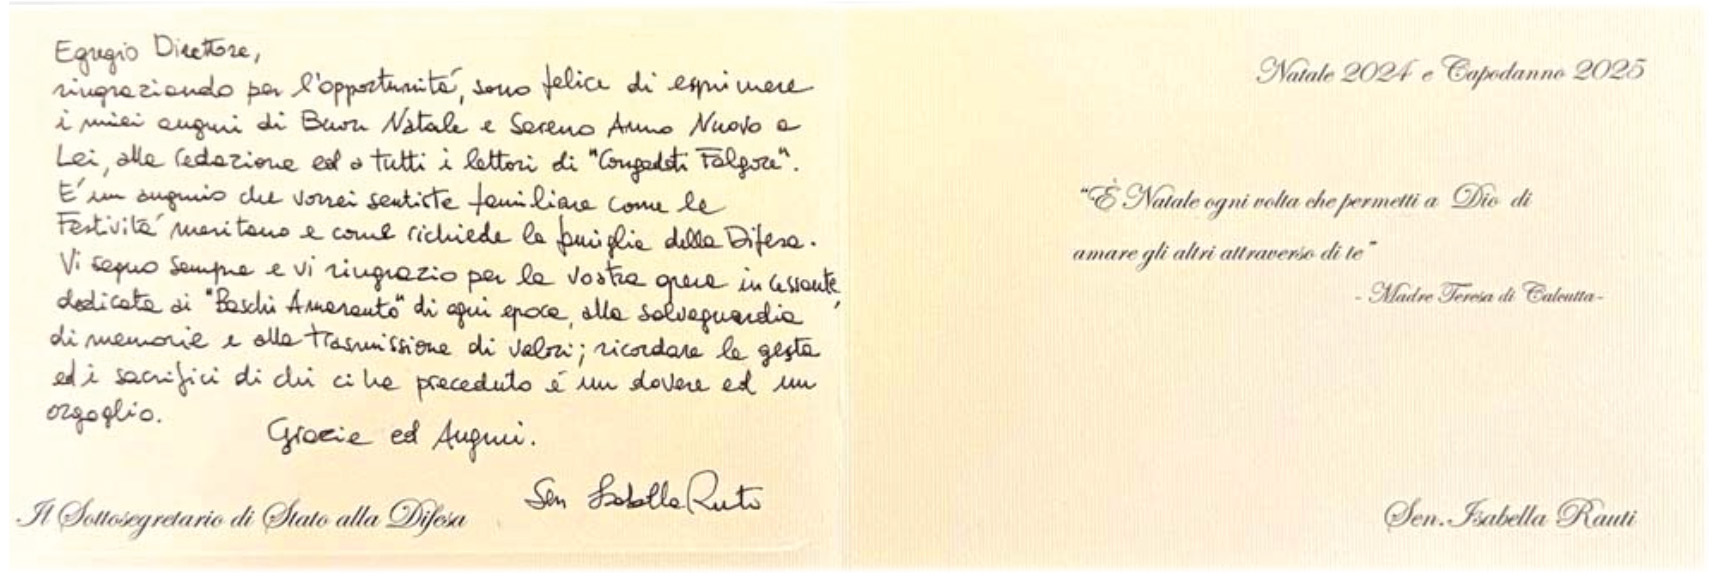 Egregio Direttore,
ringraziando per l'opportunità, sono felice di esprimere
i miei auguri di Buon Natale e Sereno Anno Nuovo a
Lei, alla redazione ed a tutti i lettori di "Congedati Folgore".
E' un augurio che vorrei sentiste familiare come le
Festività meritano e come richiede la famiglia della Difesa.
Vi seguo sempre e vi ringrazio per la vostra opera incessante,
dedicata ai "Baschi Amaranto" di ogni epoca, alla salvaguardia
di memorie e alla trasmissione di valori; ricordare le gesta
ed i sacrifici di chi ci ha preceduto è un dovere ed un
orgoglio.
Grazie ed Auguri.
Sen Isabella Rauti
Il Sottosegretario di Stato alla Difesa
Natale 2024 e Capodanno 2025
"È Natale ogni volta che permetti a Dio di
amare gli altri attraverso di te"
- Madre Teresa di Calcutta-
Sen. Isabella Rauti